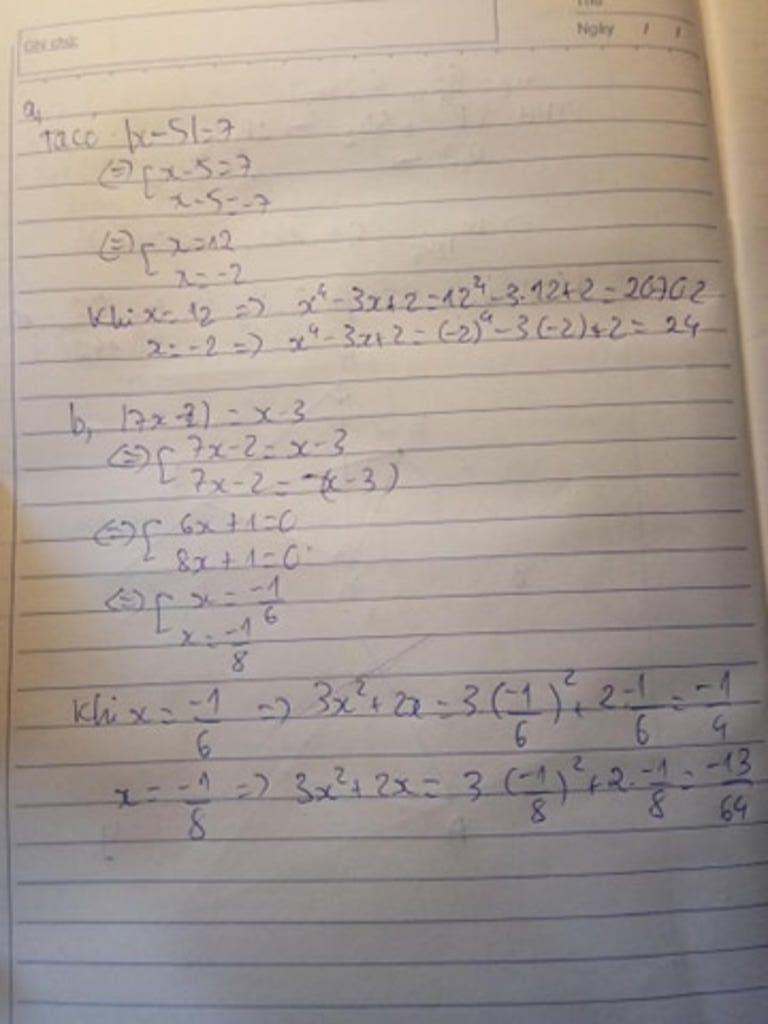 Ghi chú:
Thứ
Ngày / /
a,
Ta có |x-5|=7
(=) [ x-5=7
x-5=-7
(=) [ x=12
x=-2
Khi x=12 => x⁴-3x+2=12⁴-3.12+2=20702
x=-2 => x⁴-3x+2=(-2)⁴-3(-2)+2=24
b, |7x-2|=x-3
(=) [ 7x-2=x-3
7x-2=-(x-3)
(=) [ 6x+1=0
8x+1=0
(=) [ x=-1/6
x=-1/8
Khi x=-1/6 => 3x²+2x=3(-1/6)²+2.-1/6=-1/4
x=-1/8 => 3x²+2x=3(-1/8)²+2.-1/8=-13/64